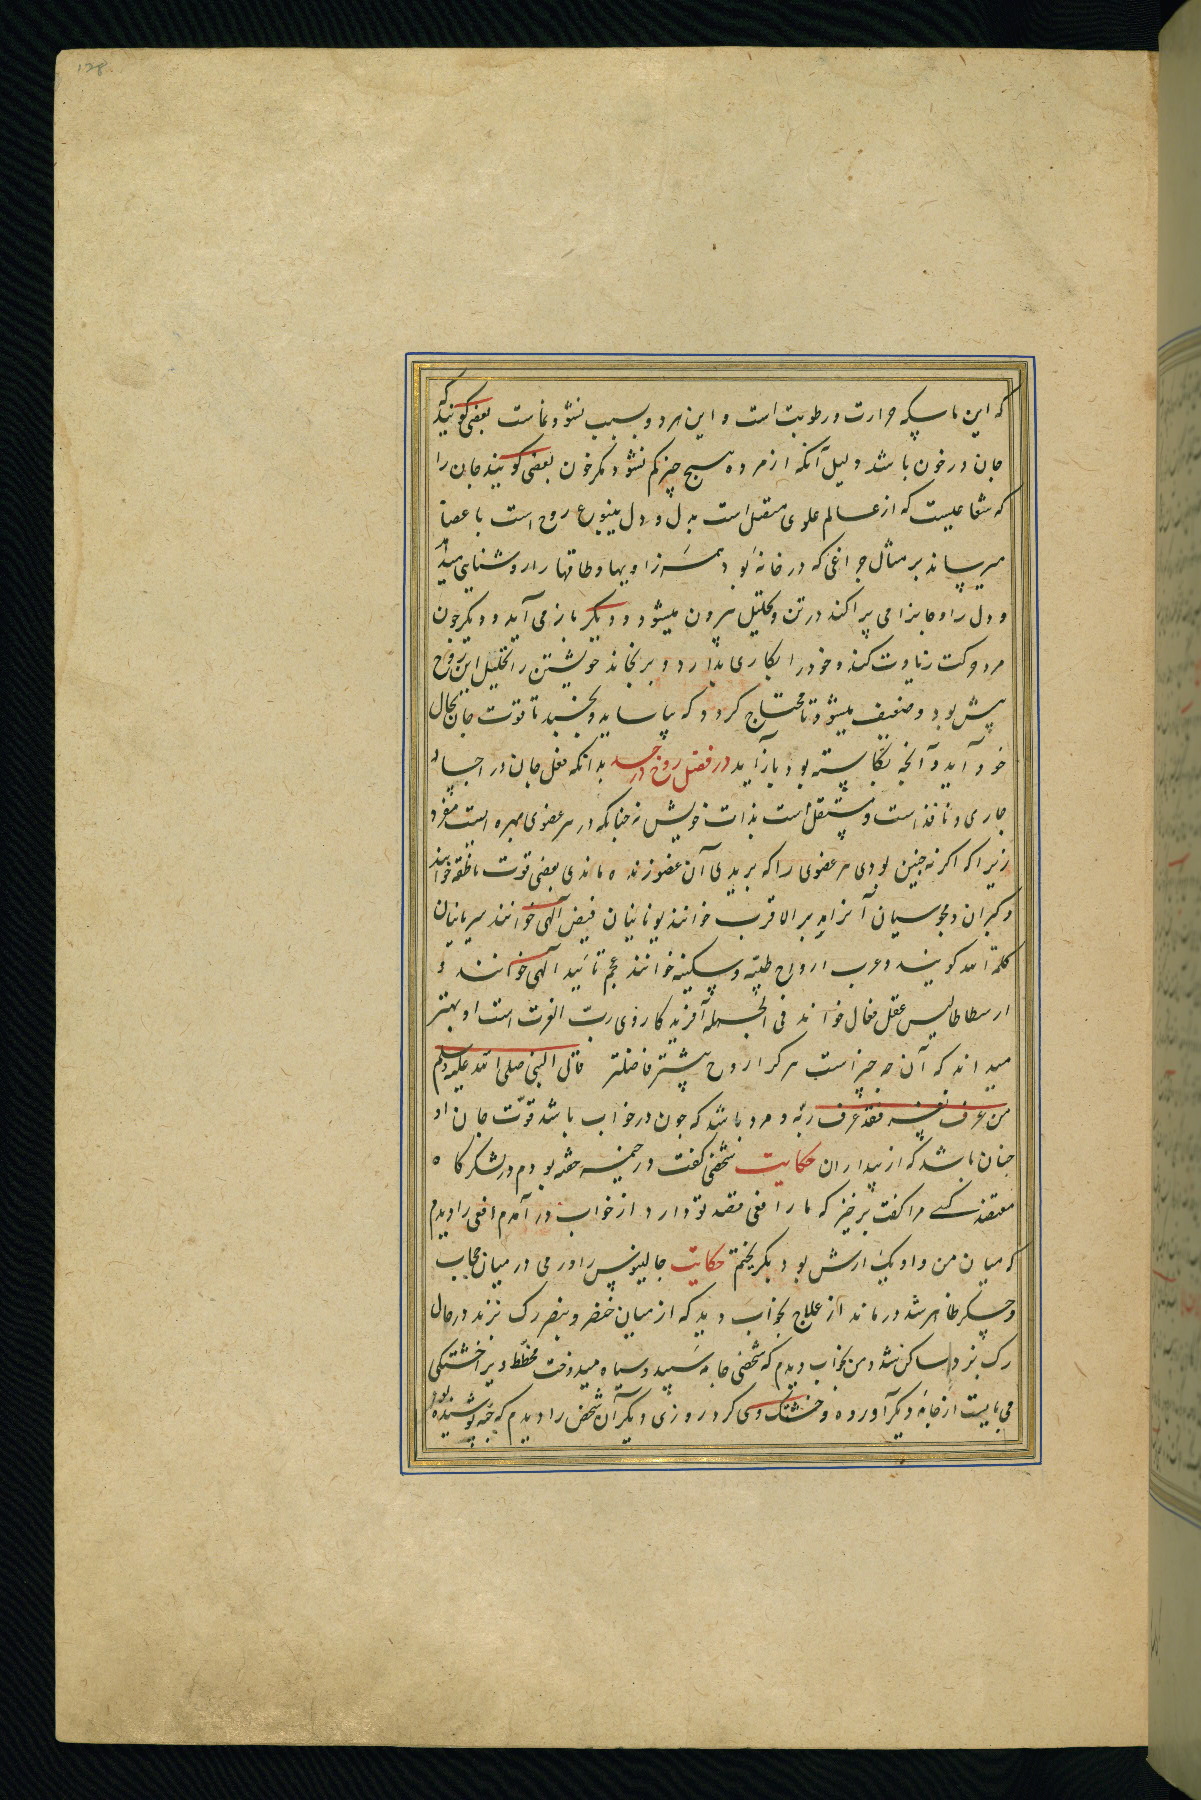 128
که این ماسکه حرارت و رطوبت است و این هر دو سبب نشو و نماست بعضی گویند که
جان در خون باشد دلیل آنکه از مرده هیچ چیز کم نشود مگر خون بعضی گویند جان را
که شعاعیست که از عالم علوی متصل است بدل و دل ینبوع روح است باعضا
میرساند بر مثال چراغی که در خانه بود همه زاویها و طاقها را روشنایی میدهد
و دل راوحا می پراکند در تن و بتحلیل بیرون میشود و دیگر باز می آید و دیگر چون
مرد حرکت زیادت کند و خود را بکاری بدارد و برنجاند خویشتن را تحلیل این روح
بیش بود و ضعیف میشود تا محتاج گردد که بیاساید و بخسبد تا قوت جان بحال
خود آید و آنچه بکاسته بود بازآید در فصل روح در جسد بدانکه فعل جان در اجساد
جاری و نافذ است و مستقل است بذات خویش نه چنانکه در هر عضوی بهره ایست مفرد
زیرا که اگر نه چنین بودی هر عضوی را که بریدی آن عضو زنده ماندی بعضی قوت ناطقه خوانند
و گبران و مجوسیان آنرا خوانند یونانیان فیض الهی خوانند سریانیان
کلمة الله گویند و عرب ارواح طیبه و سکینه خوانند عجم تائید الهی خوانند و
ارسطاطالیس عقل فعال خواند فی الجمله آفریدگار وی رب العزت است او بهتر
میداند که آن چه چیز است هر کرا روح بیشتر فاضلتر قال النبی صلی الله علیه وسلم
من عرف نفسه فقد عرف ربه و مرد باشد که چون در خواب باشد قوت جان او
چنان باشد که از بیداران حکایت شخصی گفت در خیمه خفته بودم در لشکرگاه
معتضد کسی مرا گفت برخیز که مار افعی قصد تو دارد از خواب درآمدم افعی را دیدم
که میان من و او یک ارش بود بگریختم حکایت جالینوس را ورمی در میان حجاب
و جگر ظاهر شد درماند از علاج بخواب دید که از میان خنصر و بنصر رگ بزند در حال
رگ بزد ساکن شد و من بخواب دیدم که شخصی جامه سپید و سیاه میدوخت مخطط و تیرا خشتکی
می بایست از جامه دیگر آورده و خشتک وی کرد روزی دیگر آن شخص را دیدم که جبه پوشیده بود